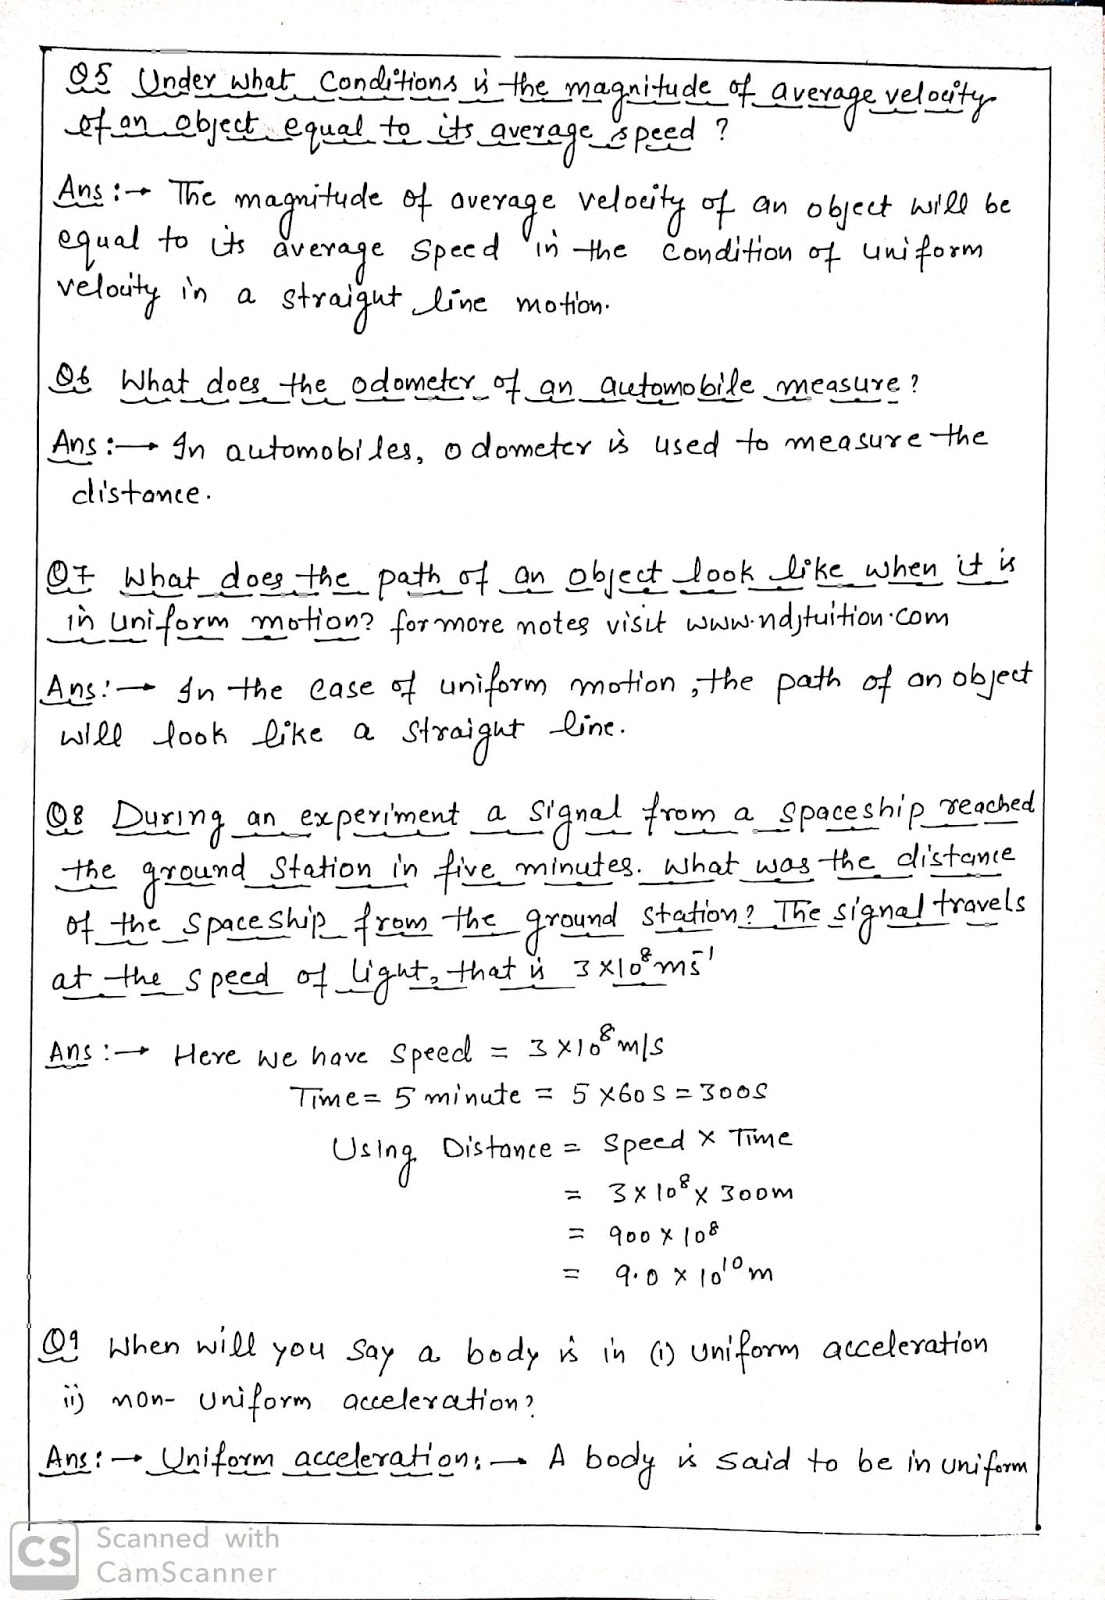 Q5 Under what Conditions is the magnitude of average velocity
of an object equal to its average speed ?
Ans :→ The magnitude of average velocity of an object will be
equal to its average speed in the condition of uniform
velocity in a straignt line motion.
Q6 What does the odometer of an automobile measure ?
Ans :→ In automobiles, odometer is used to measure the
distance.
Q7 What does the path of an object look like when it is
in uniform motion? for more notes visit www.ndjtuition.com
Ans :→ In the case of uniform motion, the path of an object
will look like a straignt line.
Q8 During an experiment a signal from a spaceship reached
the ground Station in five minutes. What was the distance
of the spaceship from the ground station? The signal travels
at the speed of light, that is 3×10⁸ms⁻¹
Ans :→ Here we have Speed = 3×10⁸m/s
Time= 5 minute = 5×60 S = 300S
Using Distance = Speed × Time
= 3×10⁸× 300m
= 900 × 10⁸
= 9.0 × 10¹⁰m
Q9 When will you Say a body is in (i) uniform acceleration
ii) non- uniform acceleration?
Ans :→ Uniform acceleration:→ A body is said to be in uniform
CS Scanned with
CamScanner